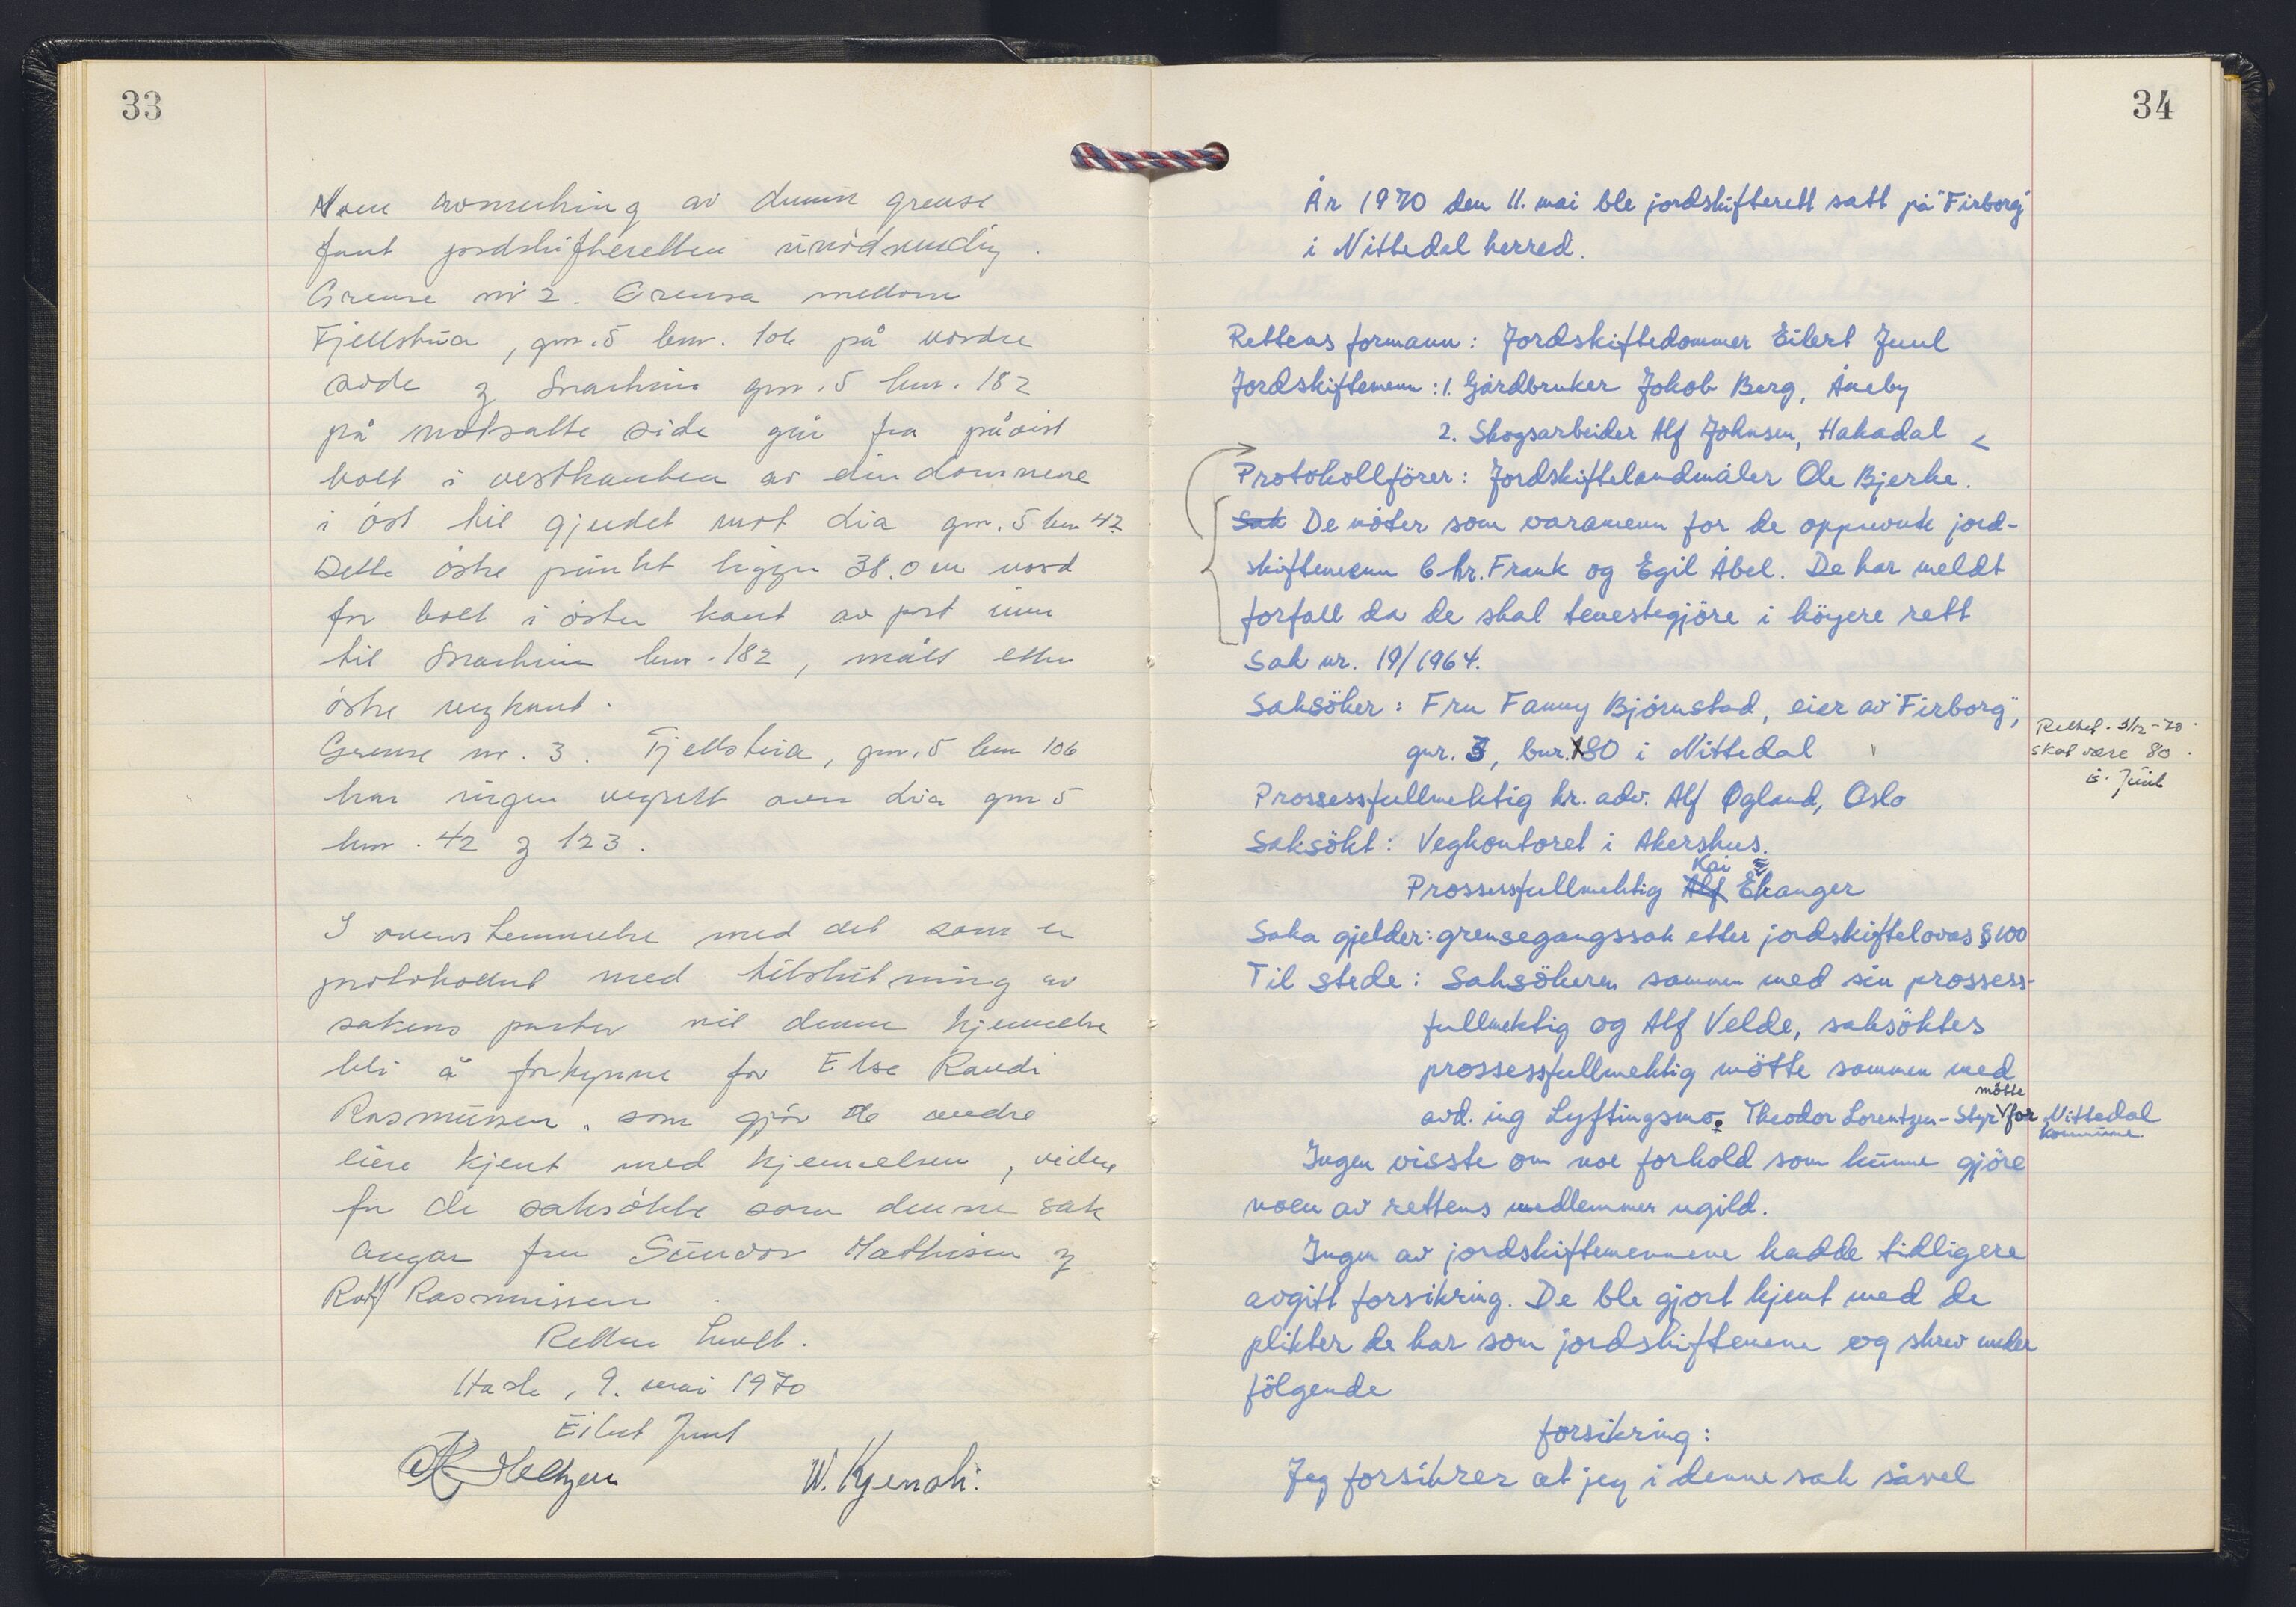 33
Noen avmerking av denne grense
fant jordskifteretten unödvendig.
Grense nr 2. Grensa mellom
Fjellstua, gnr. 5 bnr. 106 på nordre
side og gnr. 5 bnr. 182
på motsatte side går fra påvist
bolt i vestkanten av eiendommene
i öst til gjerdet mot Lia gnr. 5 bnr 42.
Dette östre punkt ligger 38.0 m nord
for bolt i östre kant av port inn
til bnr. 182, målt etter
östre vegkant.
Grense nr. 3. Fjellstua, gnr. 5 bnr 106
har ingen vegrett over Lia gnr 5
bnr. 42 og 123.
I overenstemmelse med det som er
protokollert med tilslutning av
sakens parter vil denne kjennelse
bli å forkynne for Else Randi
Rasmussen, som gjör de andre
eiere kjent med kjennelsen, videre
for de saksökte som denne sak
angår fru Sundvor Mathisen og
Rolf Rasmussen.
Retten hevet.
Hasle, 9. mai 1970
Eilert Juul
W. Kjensli.
34
År 1970 den 11. mai ble jordskifterett satt på "Firborg"
i Nittedal herred.
Rettens formann: Jordskiftedommer Eilert Juul
Jordskiftemenn: 1. Gårdbruker Jokob Berg, Åneby
2. Skogsarbeider Alf Johnsen, Hakadal
Protokollförer: Jordskiftelandmåler Ole Bjerke.
Sak De möter som varamenn for de oppnevnte jord-
skiftemenn Chr. Frank og Egil Åbel. De har meldt
forfall da de skal tenestegjöre i höyere rett
Sak nr. 19/1964.
Saksöker: Fru Fanny Björnstad, eier av "Firborg",
gnr. 3, bnr. 180 i Nittedal
Rettet. 3/12-70.
skal være 80.
E. Juul
Prossessfullmektig hr. adv. Alf Øgland, Oslo
Saksökt: Vegkontoret i Akershus.
Kai
Prossessfullmektig Alf Ekanger
Saka gjelder: grensegangssak etter jordskiftelovas § 100
Til stede: Saksökeren sammen med sin prossess-
fullmektig og Alf Velde, saksöktes
prossessfullmektig mötte sammen med
mötte
avd. ing Lyftingsmo. Theodor Lorentzen-Styr for Nittedal
kommune
Ingen visste om noe forhold som kunne gjöre
noen av rettens medlemmer ugild.
Ingen av jordskiftemennene hadde tidligere
avgitt forsikring. De ble gjort kjent med de
plikter de har som jordskiftemenn og skrev under
fölgende
forsikring:
Jeg forsikrer at jeg i denne sak såvel